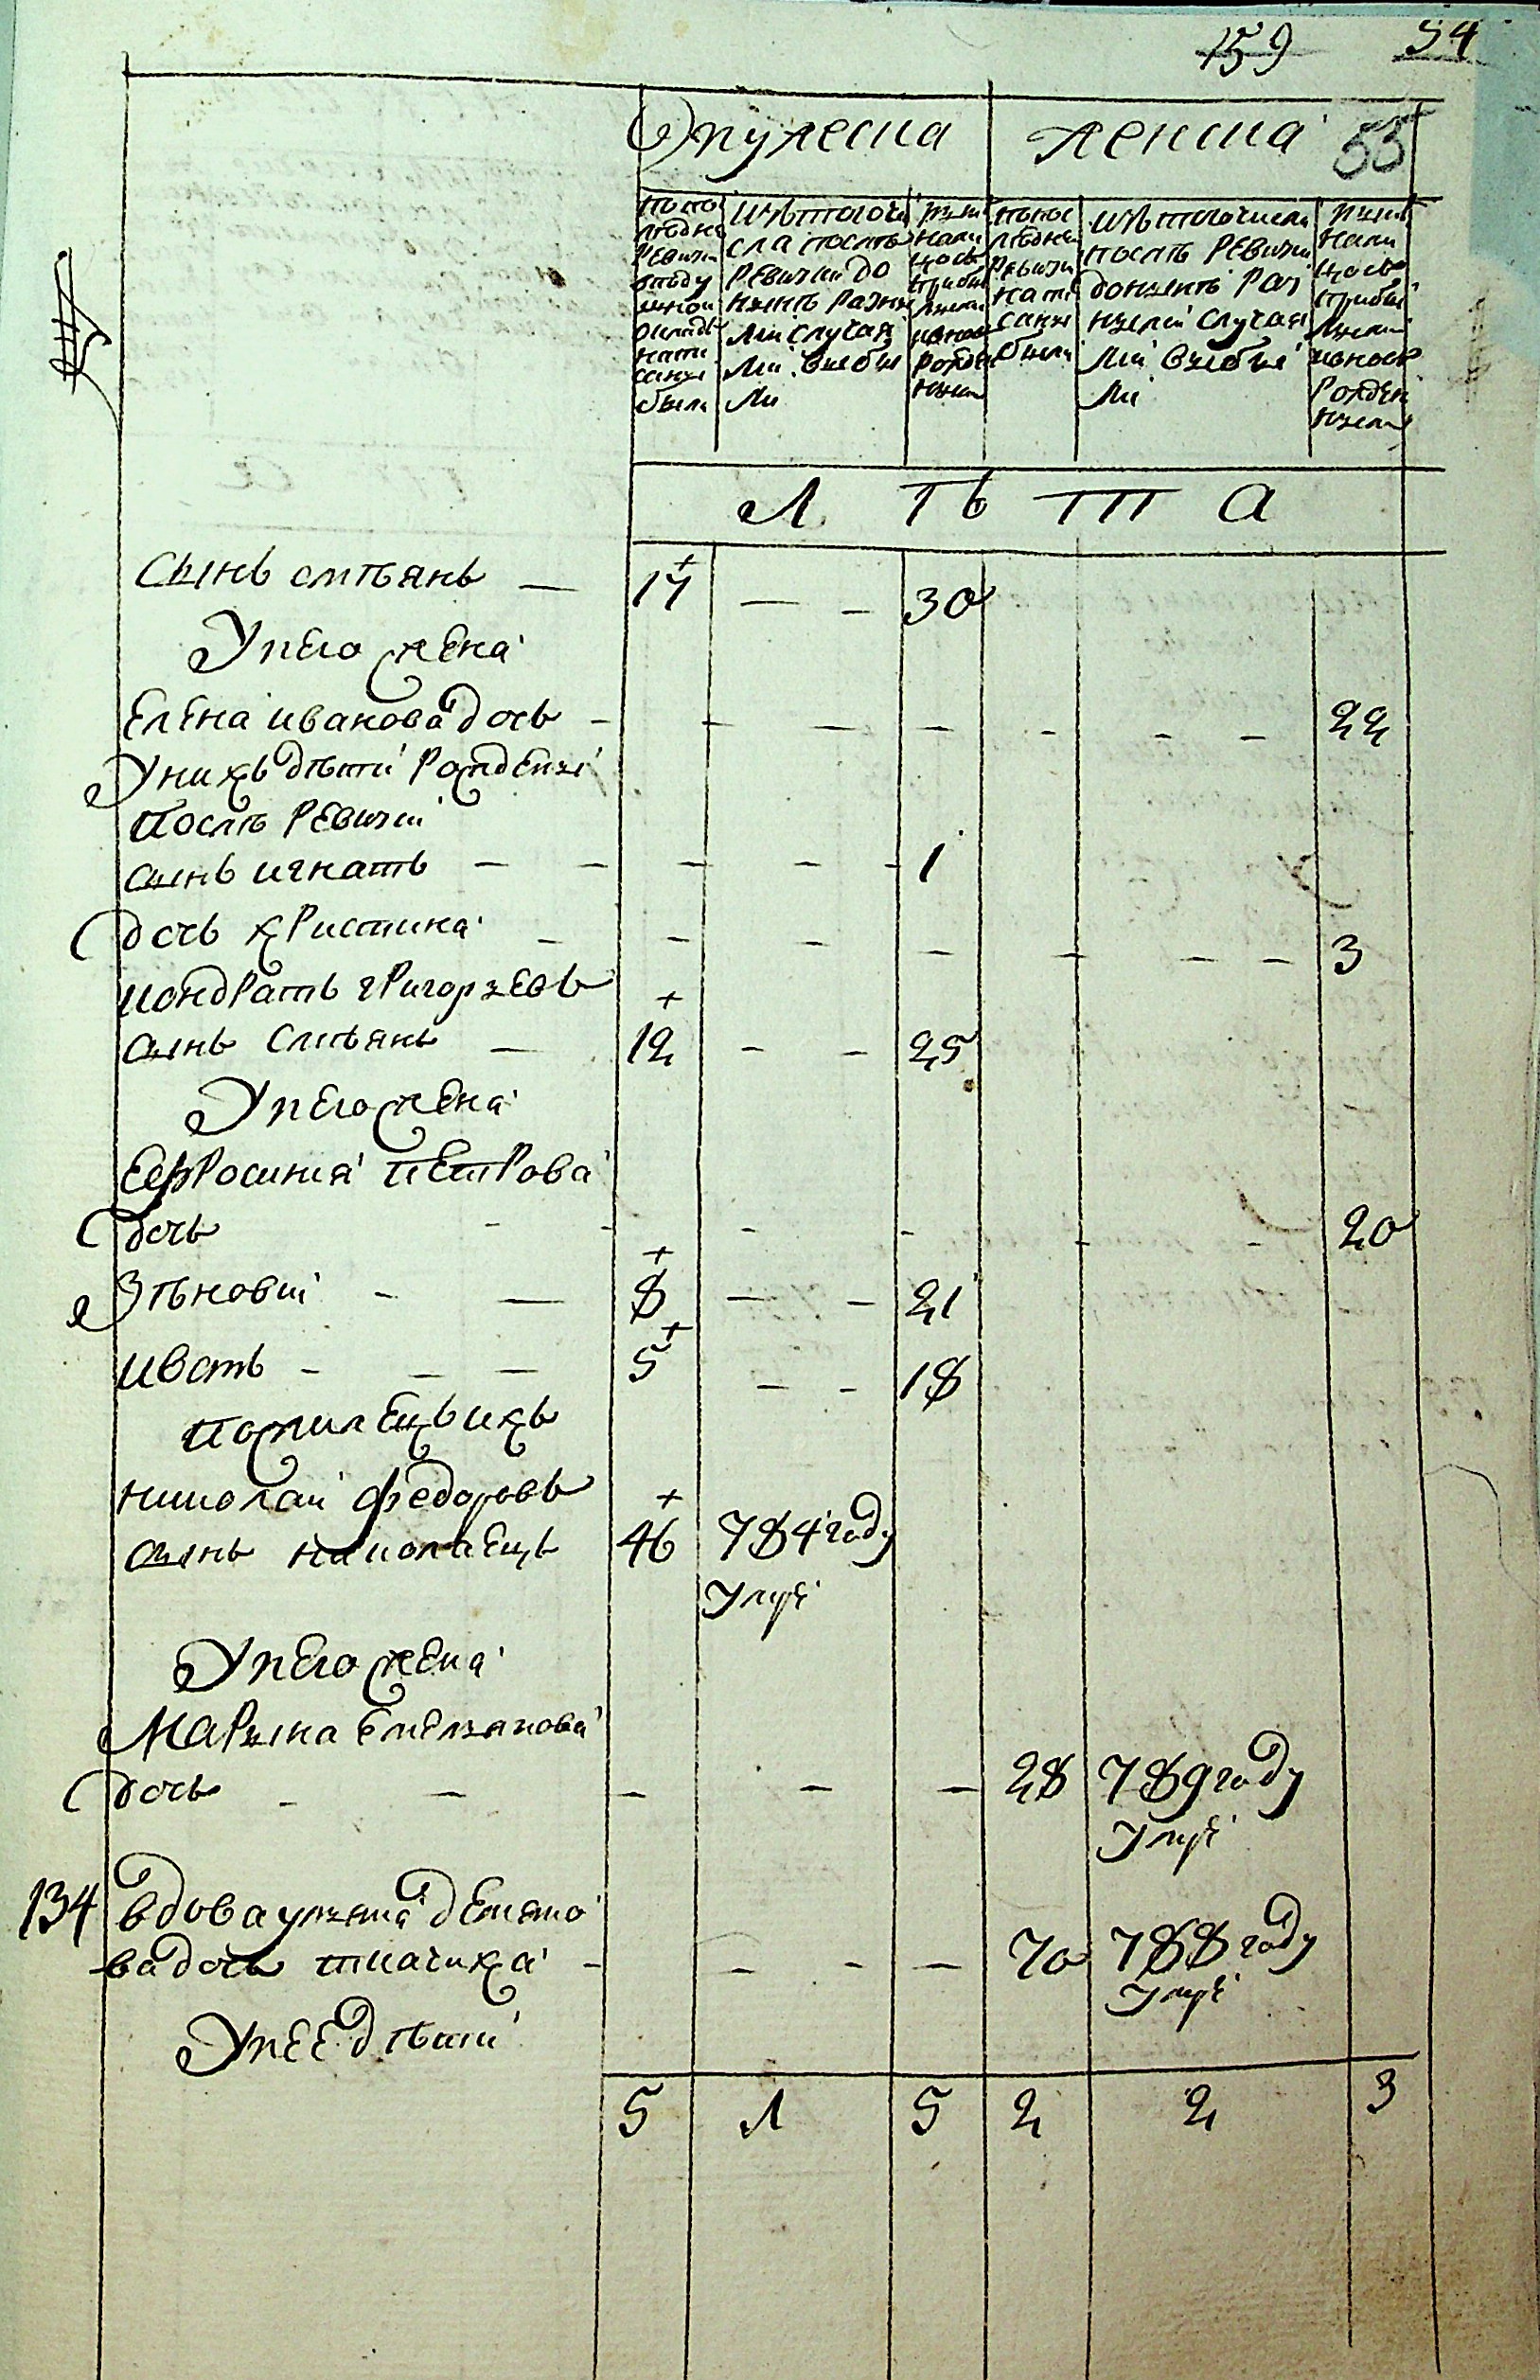 159 54
О мужеска женска 55
По по
следней
ревизии
в поду
шной
окладъ
напи
саны
были
Изъ того чи
сла после
ревизии до
ныне разны
ми случая
ми выбы
ли
ныне
нали
цо съ
прибы
лыми
и внов
рожде
ными
По пос
ледней
ревизи
напи
саны
были
Изъ того числа
после ревизии
до ныне раз
ными случая
ми выбы
ли
ныне
нали
цо съ
прибы
лыми
и вновь
рожден
ными
Л ѣ т а
Сынъ 17 — — 30
У него жена
Елена иванова дочь — — — — — — — 22
У нихъ дѣти рожденые
после ревизии
сынъ игнатъ — — — — — 1
дочь христина — — — — — — — 3
кондратъ григорьевъ
сынъ 12 — — 25
У него жена
Ефросиния петрова
дочь — — — — — — 20
Зѣновий — — 8 — — 21
ивстъ — — — 5 — — 18
николай федоровъ
сынъ 46 784 году
умре
У него жена
Марьина емельянова
дочь — — — — — 28 789 году
умре
134 вдова ульяна демено
ва дочь ткачиха — — — — 70 788 году
умре
У нее дѣти
5 1 5 2 2 3